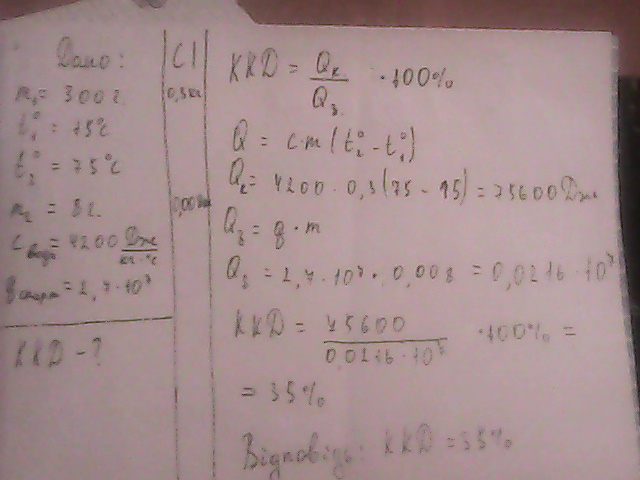 Дано:
m₁ = 300 г.
t₁° = 15°C
t₂° = 75°C
m₂ = 8 г.
c води = 4200 Дж/кг·°C
q спирт = 2,7·10⁷
ККД - ?
СІ
0,3 кг
ККД = Qк/Qз · 100%
Q = c·m (t₂° - t₁°)
Qк = 4200 · 0,3 (75 - 15) = 75600 Дж
Qз = q · m
Qз = 2,7 · 10⁷ · 0,008 = 0,0216 · 10⁷
ККД = 75600/0,0216 · 10⁷ · 100% =
= 35%
Відповідь: ККД = 35%